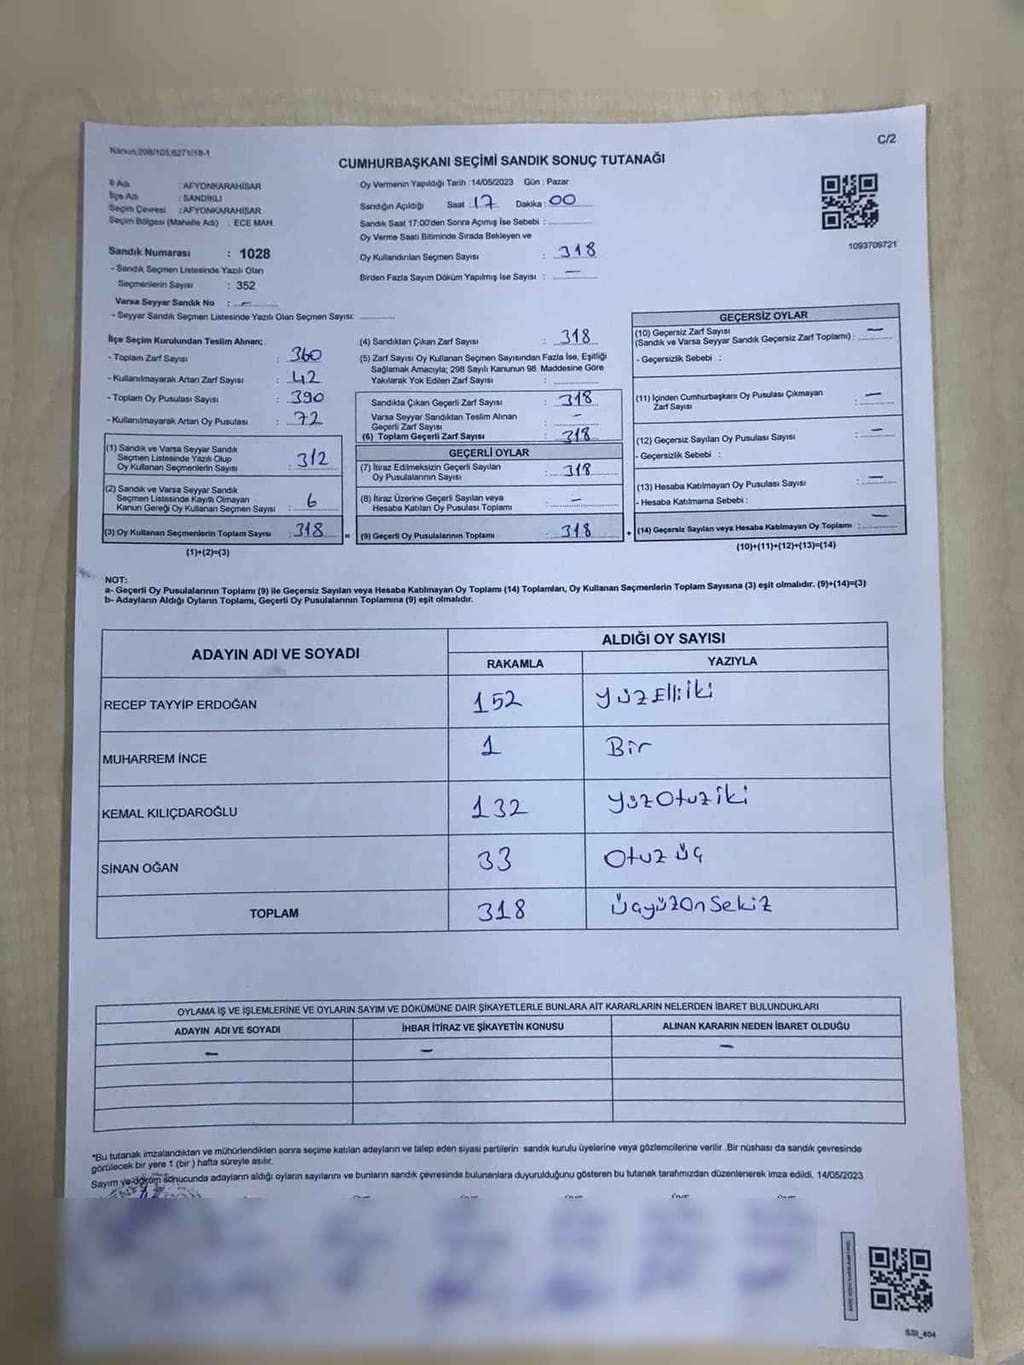 Kanun:298/105,6271/18-1
C/2
CUMHURBAŞKANI SEÇİMİ SANDIK SONUÇ TUTANAĞI
İl Adı : AFYONKARAHİSAR
İlçe Adı : SANDIKLI
Seçim Çevresi : AFYONKARAHİSAR
Seçim Bölgesi (Mahalle Adı) : ECE MAH.
Sandık Numarası : 1028
- Sandık Seçmen Listesinde Yazılı Olan
Seçmenlerin Sayısı : 352
Varsa Seyyar Sandık No : –
- Seyyar Sandık Seçmen Listesinde Yazılı Olan Seçmen Sayısı:
Oy Vermenin Yapıldığı Tarih :14/05/2023 Gün : Pazar
Sandığın Açıldığı Saat 17 Dakika: 00
Sandık Saat 17:00'den Sonra Açımış İse Sebebi :
Oy Verme Saati Bitiminde Sırada Bekleyen ve
Oy Kullandırılan Seçmen Sayısı : 318
Birden Fazla Sayım Döküm Yapılmış İse Sayısı : –
1093709721
İlçe Seçim Kurulundan Teslim Alınan;
- Toplam Zarf Sayısı : 360
- Kullanılmayarak Artan Zarf Sayısı : 42
- Toplam Oy Pusulası Sayısı : 390
- Kullanılmayarak Artan Oy Pusulası : 72
(1) Sandık ve Varsa Seyyar Sandık
Seçmen Listesinde Yazılı Olup
Oy Kullanan Seçmenlerin Sayısı : 312
(2) Sandık ve Varsa Seyyar Sandık
Seçmen Listesinde Kayıtlı Olmayan
Kanun Gereği Oy Kullanan Seçmen Sayısı : 6
(3) Oy Kullanan Seçmenlerin Toplam Sayısı : 318 =
(1)+(2)=(3)
(4) Sandıktan Çıkan Zarf Sayısı : 318
(5) Zarf Sayısı Oy Kullanan Seçmen Sayısından Fazla İse, Eşitliği
Sağlamak Amacıyla; 298 Sayılı Kanunun 98. Maddesine Göre
Yakılarak Yok Edilen Zarf Sayısı :
Sandıkta Çıkan Geçerli Zarf Sayısı : 318
Varsa Seyyar Sandıktan Teslim Alınan
Geçerli Zarf Sayısı : –
(6) Toplam Geçerli Zarf Sayısı : 318
GEÇERLİ OYLAR
(7) İtiraz Edilmeksizin Geçerli Sayılan
Oy Pusulalarının Sayısı : 318
(8) İtiraz Üzerine Geçerli Sayılan veya
Hesaba Katılan Oy Pusulası Toplamı : –
(9) Geçerli Oy Pusulalarının Toplamı : 318 +
GEÇERSİZ OYLAR
(10) Geçersiz Zarf Sayısı
(Sandık ve Varsa Seyyar Sandık Geçersiz Zarf Toplamı) : –
- Geçersizlik Sebebi :
(11) İçinden Cumhurbaşkanı Oy Pusulası Çıkmayan
Zarf Sayısı : –
(12) Geçersiz Sayılan Oy Pusulası Sayısı : –
- Geçersizlik Sebebi :
(13) Hesaba Katılmayan Oy Pusulası Sayısı : –
- Hesaba Katılmama Sebebi :
(14) Geçersiz Sayılan veya Hesaba Katılmayan Oy Toplamı : –
(10)+(11)+(12)+(13)=(14)
NOT:
a- Geçerli Oy Pusulalarının Toplamı (9) ile Geçersiz Sayılan veya Hesaba Katılmayan Oy Toplamı (14) Toplamları, Oy Kullanan Seçmenlerin Toplam Sayısına (3) eşit olmalıdır. (9)+(14)=(3)
b- Adayların Aldığı Oyların Toplamı, Geçerli Oy Pusulalarının Toplamına (9) eşit olmalıdır.
ADAYIN ADI VE SOYADI
ALDIĞI OY SAYISI
RAKAMLA YAZIYLA
RECEP TAYYİP ERDOĞAN 152 Yüzelliiki
MUHARREM İNCE 1 Bir
KEMAL KILIÇDAROĞLU 132 Yüzotuziki
SİNAN OĞAN 33 Otuz üç
TOPLAM 318 Üçyüzonsekiz
OYLAMA İŞ VE İŞLEMLERİNE VE OYLARIN SAYIM VE DÖKÜMÜNE DAİR ŞİKAYETLERLE BUNLARA AİT KARARLARIN NELERDEN İBARET BULUNDUKLARI
ADAYIN ADI VE SOYADI İHBAR İTİRAZ VE ŞİKAYETİN KONUSU ALINAN KARARIN NEDEN İBARET OLDUĞU
– – –
*Bu tutanak imzalandıktan ve mühürlendikten sonra seçime katılan adayların ve talep eden siyasi partilerin sandık kurulu üyelerine veya gözlemcilerine verilir .Bir nüshası da sandık çevresinde
görülecek bir yere 1 (bir ) hafta süreyle asılır.
Sayım ve döküm sonucunda adayların aldığı oyların sayılarını ve bunların sandık çevresinde bulunanlara duyurulduğunu gösteren bu tutanak tarafımızdan düzenlenerek imza edildi. 14/05/2023
SSI_404